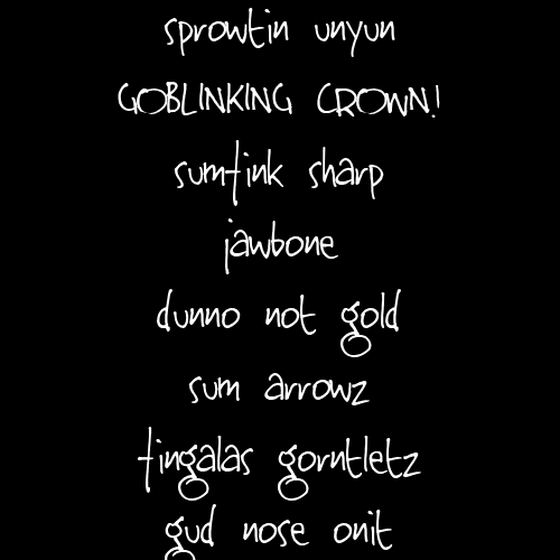 sprowtin unyun
GOBLINKING CROWN!
sumtink sharp
jawbone
dunno not gold
sum arrowz
tingalas gorntletz
gud nose onit